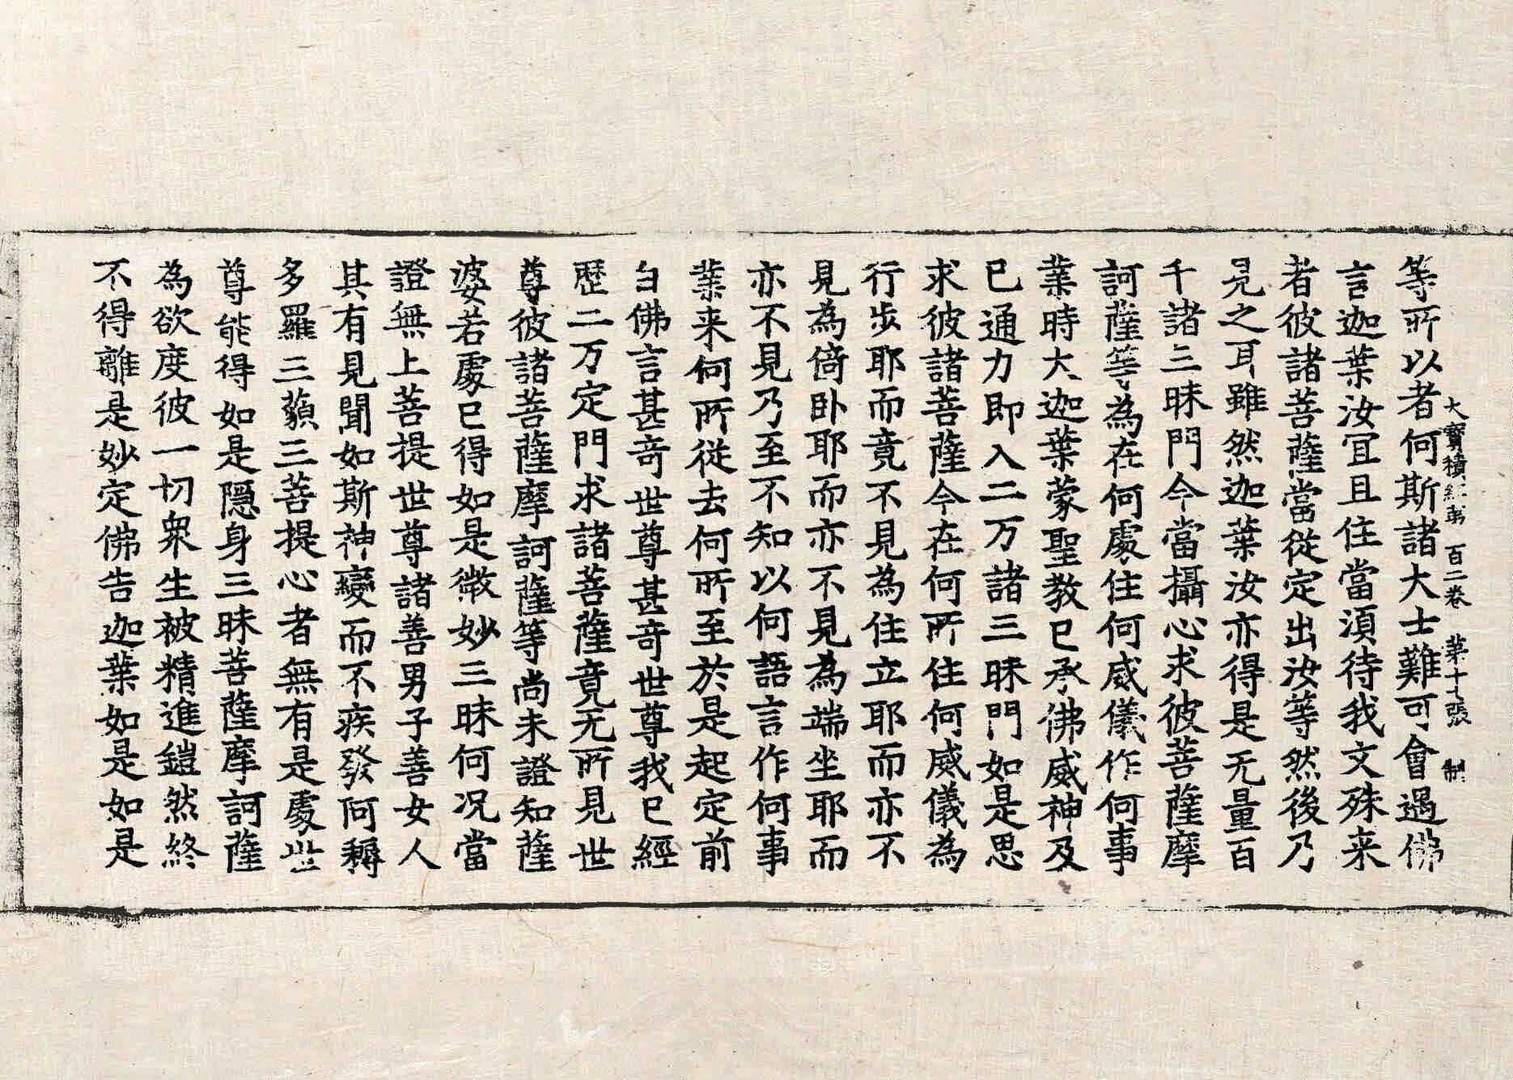 大寶積經苐 百二卷 苐十一張 制
等所以者何斯諸大士難可會遇佛
言迦葉汝冝且住當湏待我文殊来
者彼諸菩薩當從定出汝等然後乃
見之耳雖然迦葉汝亦得是无量百
千諸三昧門今當攝心求彼菩薩摩
訶薩等為在何處住何威儀作何事
業時大迦葉蒙聖教已承佛威神及
已通力即入二万諸三昧門如是思
求彼諸菩薩今在何所住何威儀為
行步耶而竟不見為住立耶而亦不
見為倚卧耶而亦不見為端坐耶而
亦不見乃至不知以何語言作何事
業来何所從去何所至於是起定前
白佛言甚奇世尊甚奇世尊我已經
歷二万定門求諸菩薩竟无所見世
尊彼諸菩薩摩訶薩等尚未證知薩
婆若處已得如是微妙三昧何况當
證無上菩提世尊諸善男子善女人
其有見聞如斯神變而不疾發阿耨
多羅三藐三菩提心者無有是處世
尊能得如是隱身三昧菩薩摩訶薩
為欲度彼一切衆生被精進鎧然終
不得離是妙定佛告迦葉如是如是